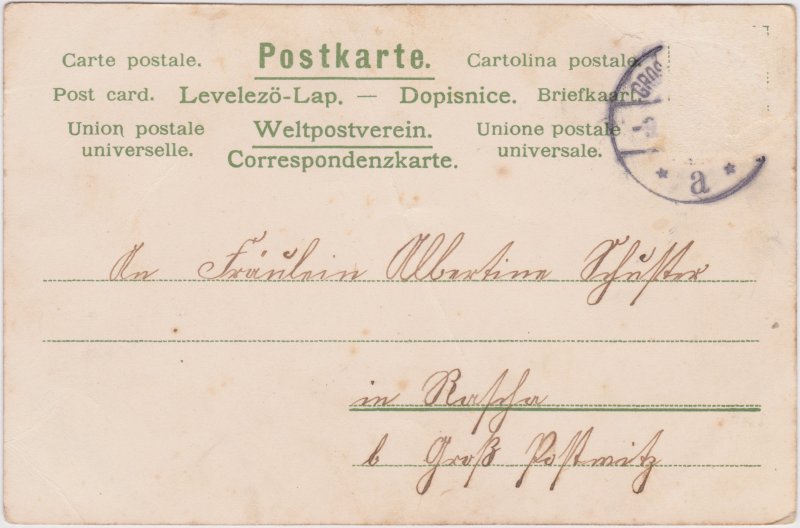 Carte postale. Postkarte. Cartolina postale.
Post card. Levelező-Lap. — Dopisnice. Briefkaart.
Union postale universelle. Weltpostverein. Unione postale universale.
Correspondenzkarte.
* a *
An Fräulein Albertine Schuster
in Rascha
b Groß Postwitz